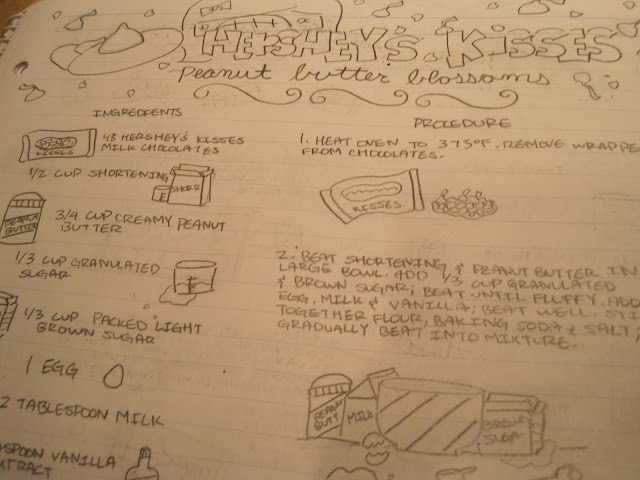 HERSHEY'S KISSES
Peanut butter blossoms
INGREDIENTS
48 HERSHEY'S KISSES
MILK CHOCOLATES
KISSES
1/2 CUP SHORTENING
SHORTE
3/4 CUP CREAMY PEANUT
BUTTER
PEANUT
BUTTER
1/3 CUP GRANULATED
SUGAR
1/3 CUP PACKED LIGHT
BROWN SUGAR
1 EGG
2 TABLESPOON MILK
ASPOON VANILLA
XTRACT
PROCEDURE
1. HEAT OVEN TO 375°F. REMOVE WRAPPE
FROM CHOCOLATES.
KISSES
2. BEAT SHORTENING & PEANUT BUTTER IN
LARGE BOWL. ADD 1/3 CUP GRANULATED
& BROWN SUGAR; BEAT UNTIL FLUFFY. ADD
EGG, MILK & VANILLA; BEAT WELL. STI
TOGETHER FLOUR, BAKING SODA & SALT;
GRADUALLY BEAT INTO MIXTURE.
PEANUT
BUTT
MILK
BROWN
SUGA